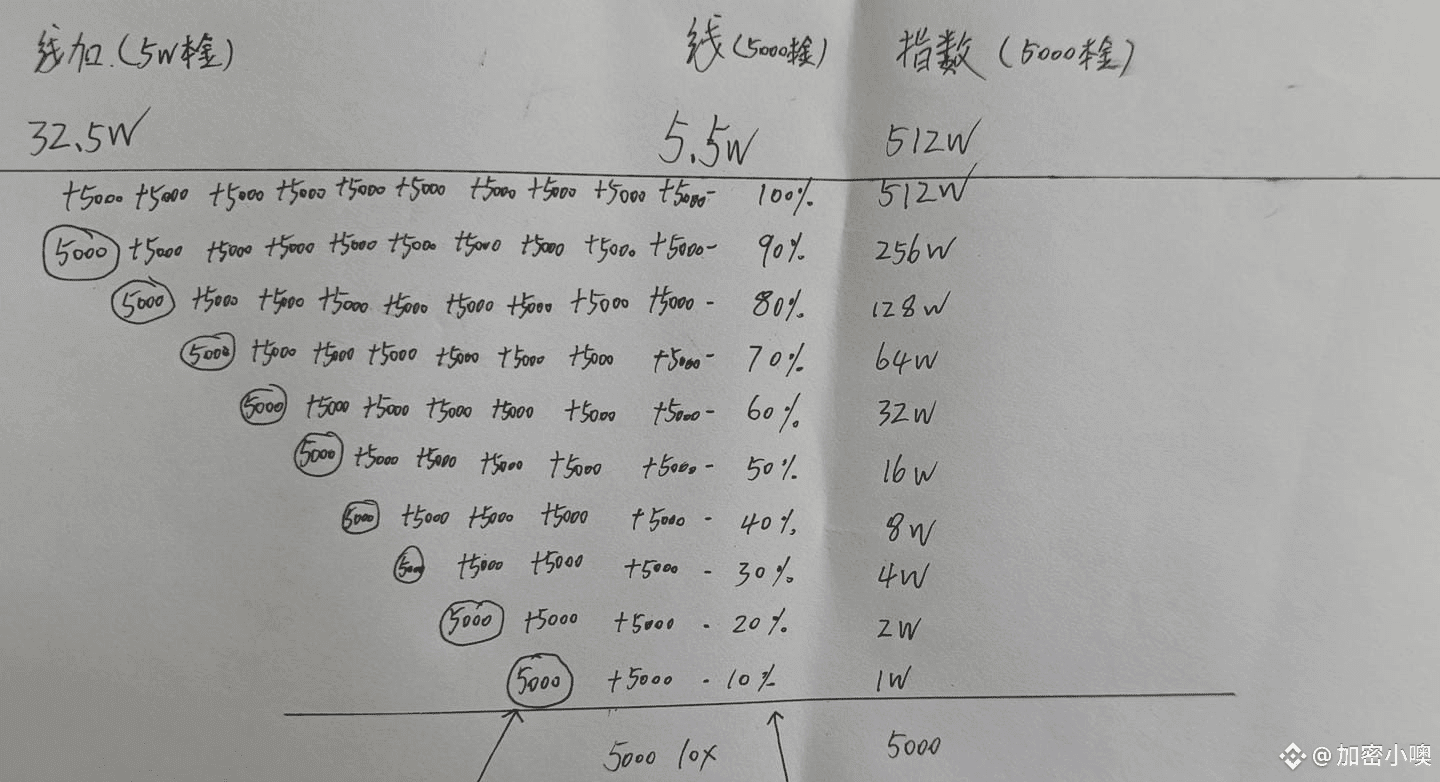 线加.(5W本金) 线(5000本金) 指数(5000本金)
32.5W 5.5W 512W
+5000 +5000 +5000 +5000 +5000 +5000 +5000 +5000 +5000 +5000- 100% 512W
5000 +5000 +5000 +5000 +5000 +5000 +5000 +5000 +5000 +5000- 90% 256W
5000 +5000 +5000 +5000 +5000 +5000 +5000 +5000 +5000- 80% 128W
5000 +5000 +5000 +5000 +5000 +5000 +5000 +5000- 70% 64W
5000 +5000 +5000 +5000 +5000 +5000 +5000- 60% 32W
5000 +5000 +5000 +5000 +5000 +5000- 50% 16W
5000 +5000 +5000 +5000 +5000- 40% 8W
5000 +5000 +5000 +5000- 30% 4W
5000 +5000 +5000- 20% 2W
5000 +5000- 10% 1W
5000 10X 5000
@加密小噢